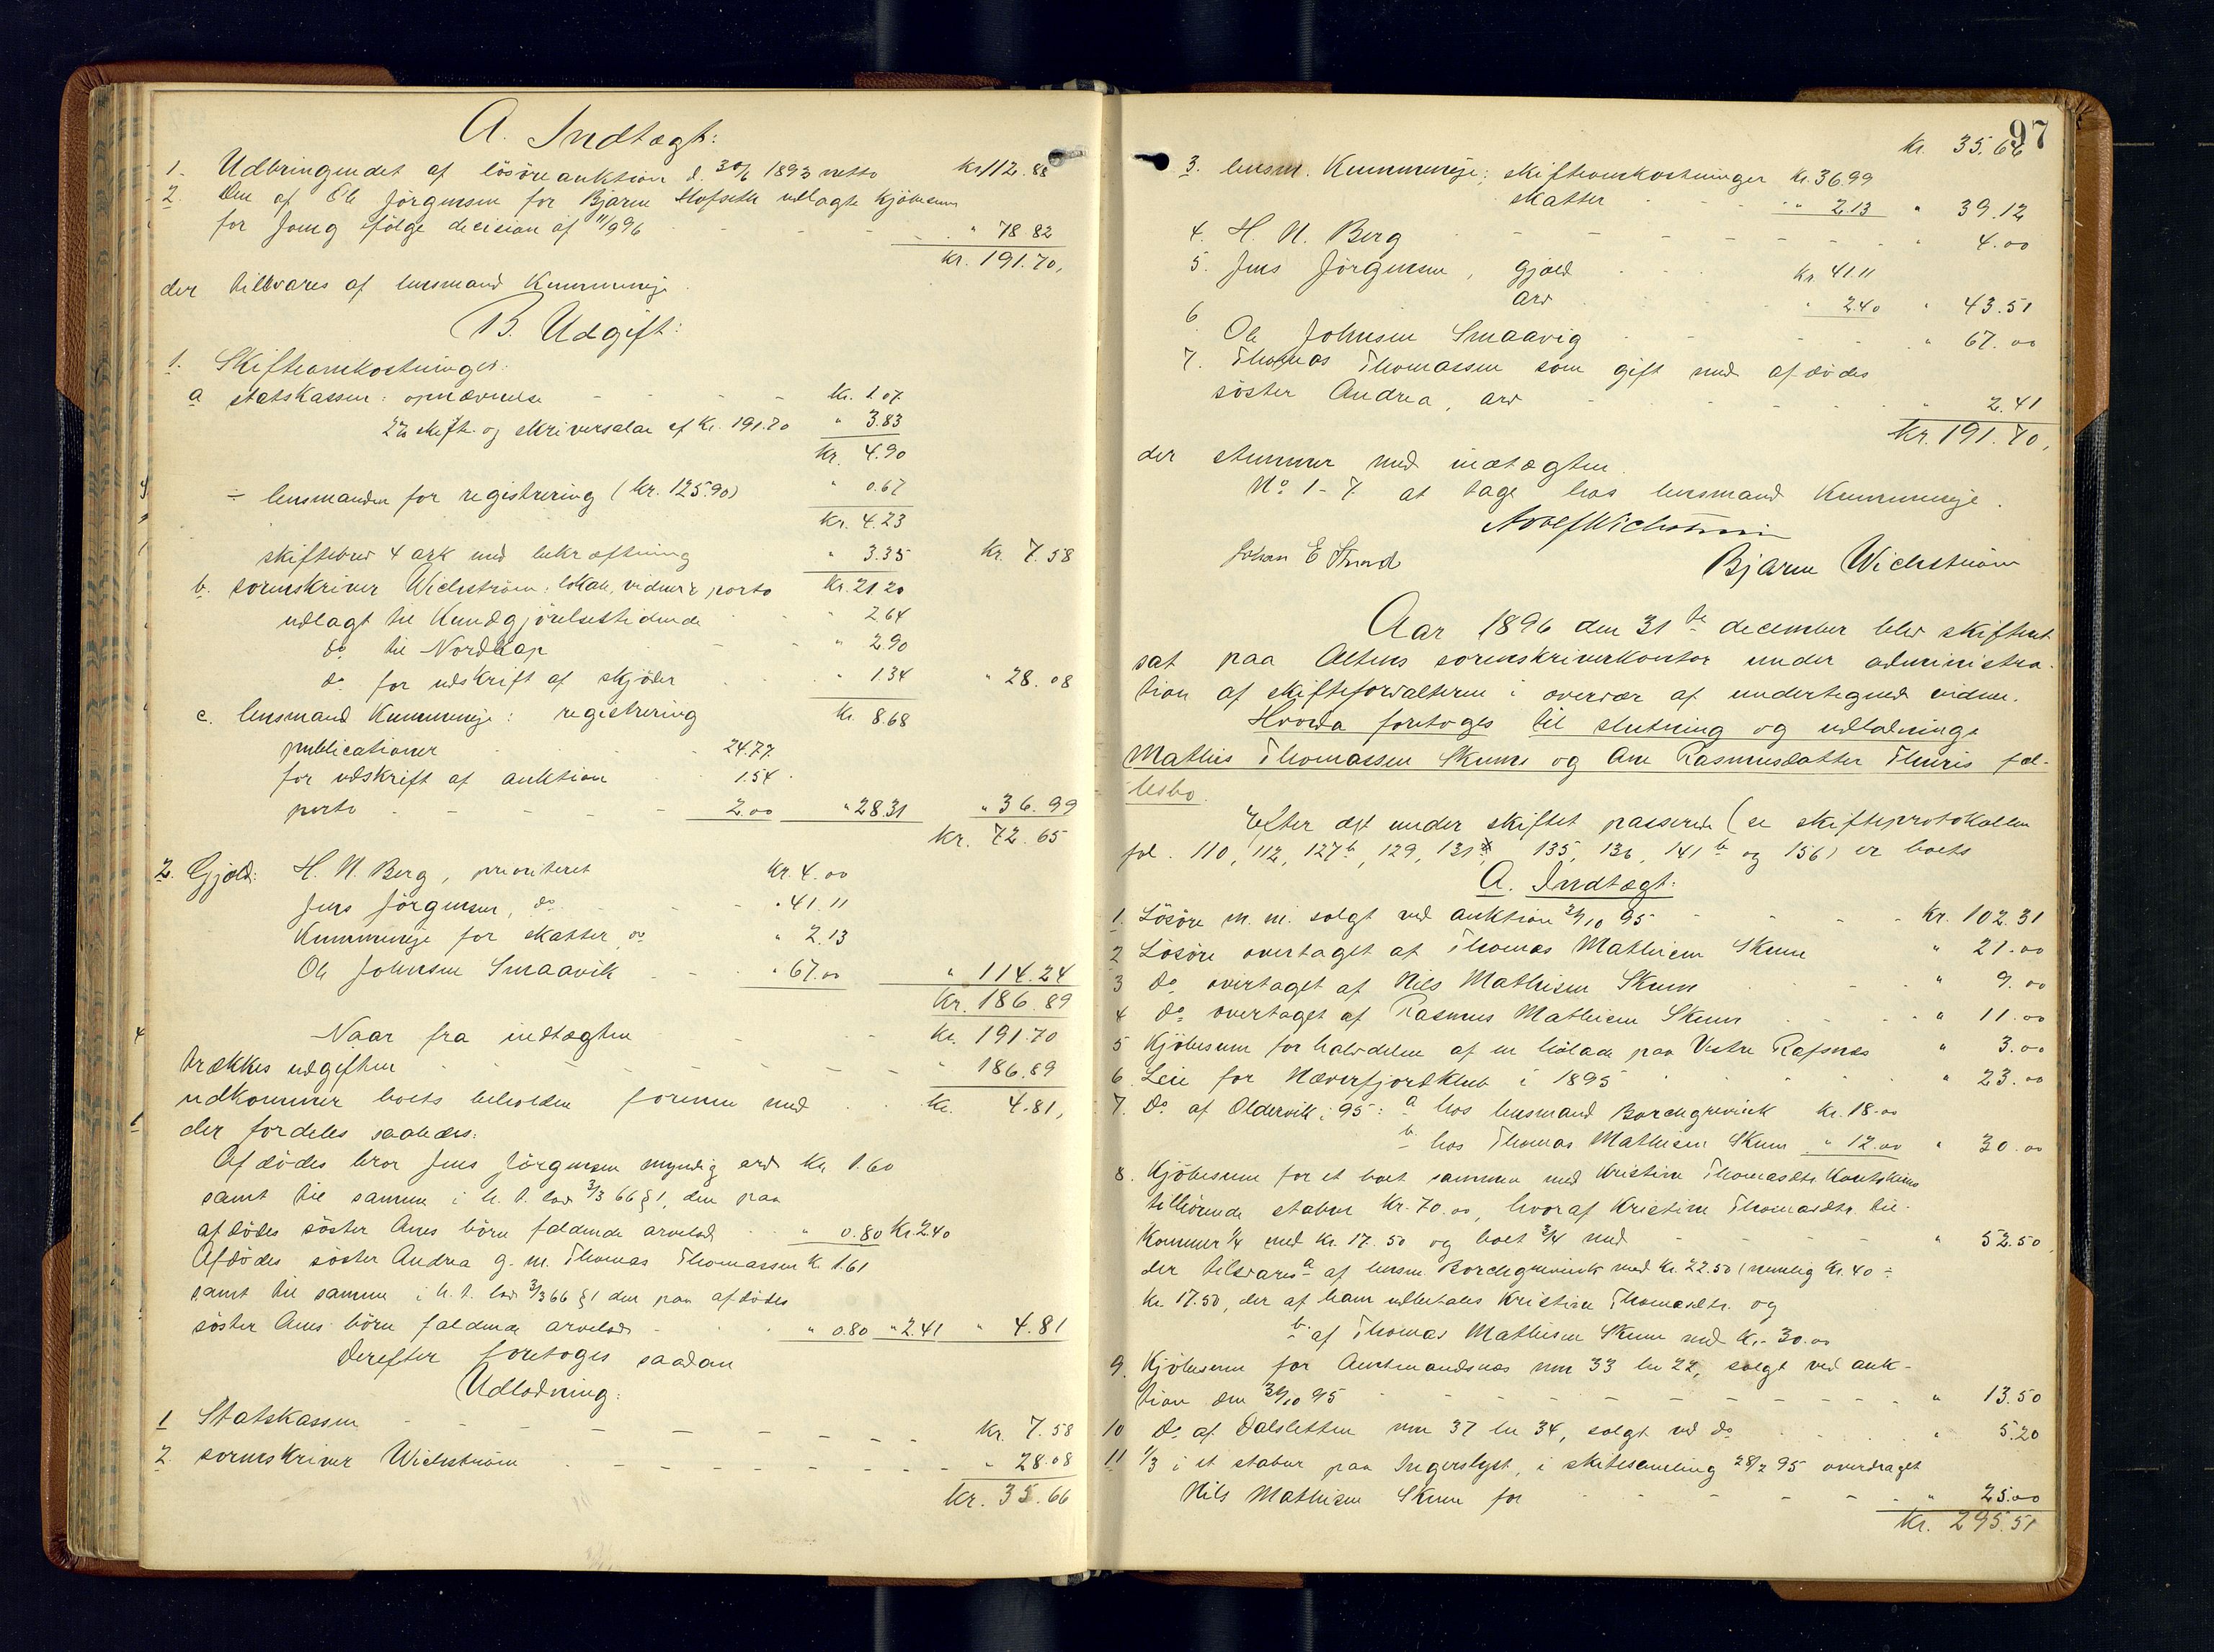 A. Indtægt:
1. Udbringendet af lösöreauktion d. 30/6 1893 netto Kr. 112.88
2. Den af Ole Jörgensen for Bjarne Hofseth udlagte kjöbesum
for ifölge decision af 11/9 96 - - - " 78 82
Kr. 191.70,
der tilsvares af lensmand Kummeneje.
B. Udgift:
1. Skifteomkostninger:
a statskassen: opnævnelse - - - - Kr. 1 07
2% skifte- og skriversalær af Kr. 191.70 " 3.83
Kr. 4.90
÷ lensmanden for registrering (Kr. 125.90) " 0.67
Kr. 4.23
skiftebrev 4 ark med bekræftning " 3.35 Kr. 7.58
b. sorenskriver Wichström: lokale, vidner & porto Kr. 21 20
udlagt til Kundgjörelsestidende " 2 64
do til Nordkap " 2.90
do for udskrift af skjöder " 1.34 " 28.08
c. lensmand Kummeneje: registrering Kr. 8.68
publicationer 24.77
for udskrift af auktion 1.54
porto - - - - 2.00 " 28 31 " 36.99
Kr. 72.65
2. Gjæld: H. N. Berg, prioriteret Kr. 4.00
Jens Jörgensen, do - " 41.11
Kummeneje for skatter do " 2.13
Ole Johnsen Smaavik " 67.00 " 114.24
Kr. 186.89
Naar fra indtægten Kr. 191.70
trækkes udgiften - - - - " 186.89
udkommer boets beholden formue med Kr. 4.81,
der fordeles saaledes:
Afdödes bror Jens Jörgensen myndig arv Kr. 1.60
samt til samme i h. t. lov 3/3 66 § 1, den paa
afdödes söster Anes börn faldende arvelod " 0.80 Kr. 2.40
Afdödes söster Andrea g. m. Thomas Thomassen K. 1.61
samt til samme i h. t. lov 3/3 66 § 1 den paa afdödes
söster Anes börn faldende arvelod " 0.80 " 2.41 " 4.81
Derefter foretoges saadan
Udlodning:
1 Statskassen - - - - Kr. 7.58
2. sorenskriver Wichström - - - - " 28.08
Kr. 35.66
97
Kr. 35.66
3. lensm. Kummeneje; skifteomkostninger Kr. 36.99
skatter " 2.13 " 39.12
4. H. N. Berg - - - - " 4.00
5. Jens Jörgensen, gjæld Kr. 41.11
arv " 2.40 " 43.51
6 Ole Johnsen Smaavig " 67.00
7. Thomas Thomassen som gift med afdödes
söster Andrea, arv " 2.41
Kr. 191.70,
der stemmer med indtægten.
No 1-7 at tage hos lensmand Kummeneje.
Adolf Wichström
Johan E Strand
Bjarne Wichström
Aar 1896 den 31te december blev skifteret
sat paa Altens sorenskriverkontor under administra-
tion af skifteforvalteren i overvær af undertegnede vidner.
Hvorda foretoges til slutning og udlodninge
Mathis Thomassen Skums og Ane Rasmusdatter Thuris fæl-
lesbo.
Efter det under skiftet passerede (se skifteprotokollen
fol. 110, 112, 127b, 129, 131, 135, 136, 141b og 156) er boets
A. Indtægt:
1. Lösöre m. m. solgt ved auktion /10 95 - - Kr. 102.31
2 Lösöre overtaget af Thomas Mathisen Skum " 21.00
3 Do overtaget af Nils Mathisen Skum " 9.00
4 do overtaget af Rasmus Mathisen Skum " 11.00
5 Kjöbesum for halvdelen af en hölade paa Vestre Rafsnæs " 3.00
6. Leie for Næverfjordklub i 1895 " 23.00
7. Do af Oldervik i 95: a hos lensmand Borchgrevink Kr. 18.00
b. hos Thomas Mathisen Skum " 12.00 " 30.00
8. Kjöbesum for et boet sammen med Kristine Thomasdtr. Koutokeino
tilhörende stabur Kr. 70.00, hvoraf Kristine Thomasdtr. til-
kommer 1/4 med Kr. 17.50 og boet 3/4 med " 52.50,
der tilsvares a af lensm. Borchgrevink med Kr. 22.50 (nemlig Kr. 40 ÷
Kr. 17.50, der af ham udbetales Kristine Thomasdtr. og
b. af Thomas Mathisen Skum med K. 30.00
9. Kjöbesum for Amtmandsnæs mn 33 ln 22, solgt ved auk-
tion den /10 95 - - - - " 13.50
10 Do af Dalsletten mn 37 ln 34, solgt ved do " 5.20
11 1/3 i et stabur paa Ingerslyst, i skiftesamling 28/2 95 overdraget
Nils Mathisen Skum for - - - - " 25.00
Kr. 295.51